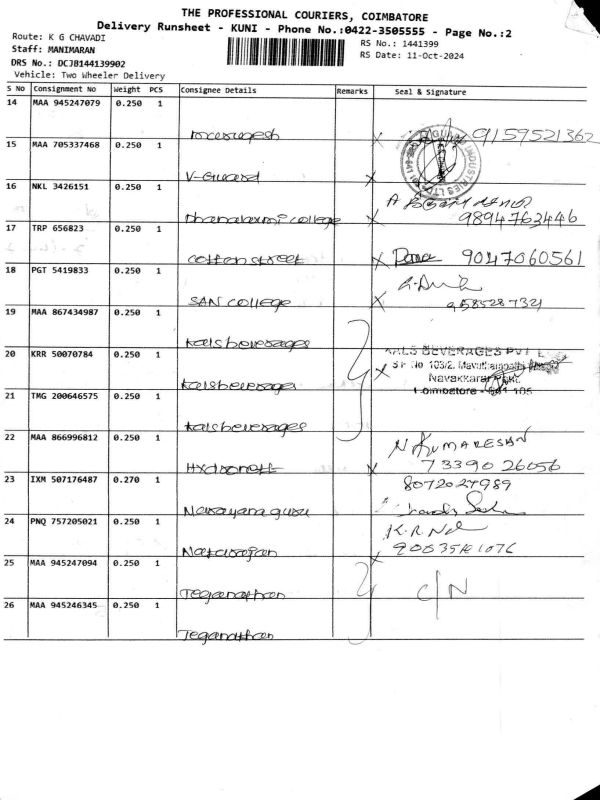 THE PROFESSIONAL COURIERS, COIMBATORE
Delivery Runsheet - KUNI - Phone No.:0422-3505555 - Page No.:2
Route: K G CHAVADI
Staff: MANIMARAN
DRS No.: DCJB144139902
Vehicle: Two Wheeler Delivery
RS No.: 1441399
RS Date: 11-Oct-2024
S No Consignment No Weight PCS Consignee Details Remarks Seal & Signature
14 MAA 945247079 0.250 1
9159521362
15 MAA 705337468 0.250 1
V-Guard
16 NKL 3426151 0.250 1
Dhanalaxmi college 9894763446
17 TRP 656823 0.250 1
cotton street 9047060561
18 PGT 5419833 0.250 1
SAN college 9585287321
19 MAA 867434987 0.250 1
kals beverages
20 KRR 50070784 0.250 1
KALS BEVERAGES PVT L
S F No 103/2, Mavuthampathi
Navakkarai
Coimbatore - 641 105
kals beverage
21 TMG 200646575 0.250 1
kals beverages
22 MAA 866996812 0.250 1
N KUMARESAN
7339026056
23 IXM 507176487 0.270 1
8072027989
Narayana guru
24 PNQ 757205021 0.250 1
K.R.
Natarajan
25 MAA 945247094 0.250 1
C/N
Teganathan
26 MAA 945246345 0.250 1
Teganathan